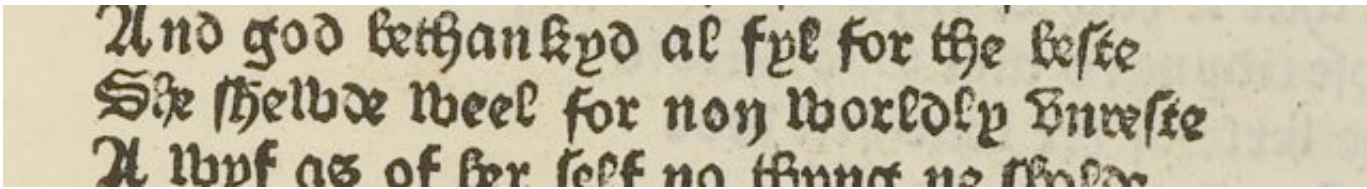 And god bethankyd al fyl for the beste
She shewde weel for non worldly vnreste
A wyf as of her self no thyng ne sholde